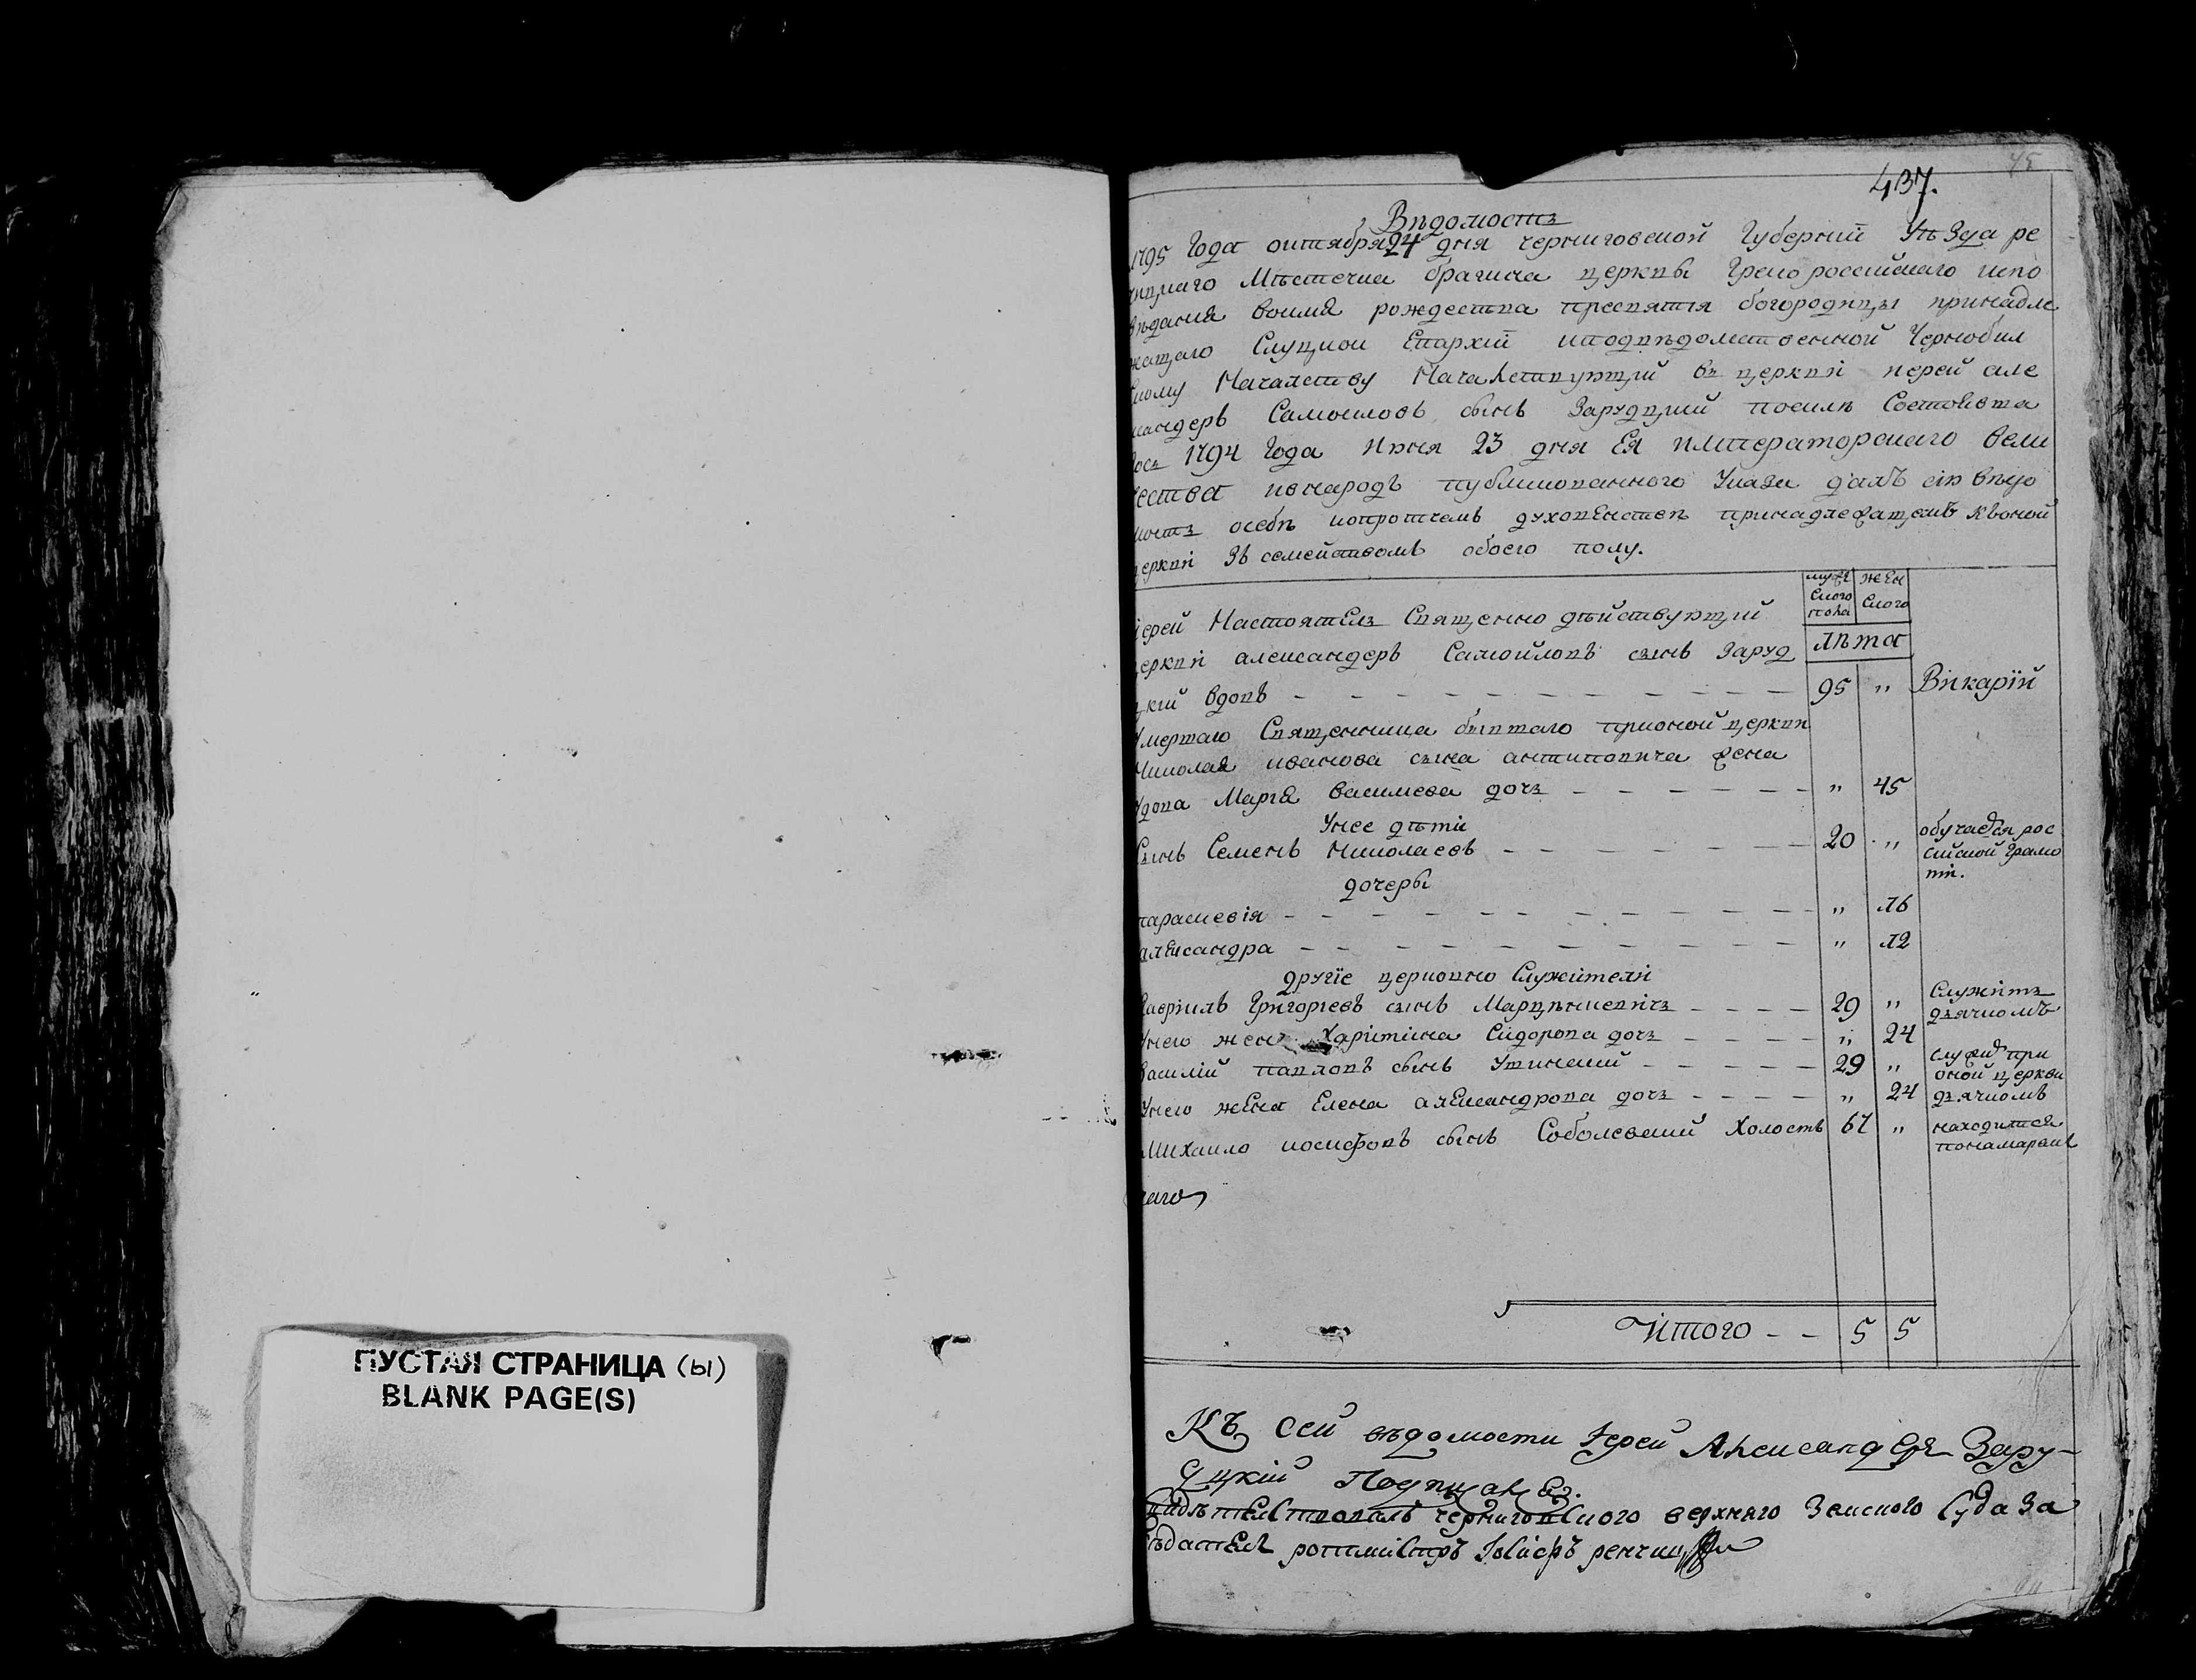 ПУСТАЯ СТРАНИЦА (ы)
BLANK PAGE(S)
437.
Вѣдомость
1795 Года октября 24 дня черниговской Губернии Уѣзда ре
чицкаго Мѣстечка брагина церквы Грекороссийскаго испо
вѣдания воимя рождества пресвятія богородицы принадле
жащаго Слуцкой Епархіи иподвѣдомственной Чернобил
скому Началству Началствующій въ церквѣ иерей але
ксандеръ Самоиловъ сынъ Заруцкий посилѣ Состоявша
гось 1794 Года Июня 23 дня Ея императорскаго вели
чества ивнародъ публикованного Указа далъ сію вѣдо
мость осебѣ иопротчемъ духовенствѣ принадлежащемъ къоной
церкви Зъ семействомъ обоего полу.
муже
ского
пола
жен
ского
лѣта
іерей Настоятель Священно дѣйствующій
церкви александеръ Самойловъ сынъ Заруд
цкій вдовъ – – – – – – – – – – – 95 „ Викарїй
Умершаго Священника бывшаго прионой церкви
Николая иванова сына антиповича жена
Удова Марія василиева дочь – – – – – – „ 45
Унее дѣти
Сынъ Семенъ Николаевъ – – – – – – – 20 „ обучается рос
сийской Грамо
тѣ.
дочеры
параскевія – – – – – – – – – – – – „ 16
александра – – – – – – – – – – – „ 12
другїе церковно Служители
Гаврилъ Григориевъ сынъ Марцѣнкевичъ – – – – 29 „ Служитъ
дьячкомъ
Унего жена Харитина Сидорова дочь – – – – – „ 24
василій павловъ сынъ Утинский – – – – – 29 „ служит при
оной церкви
дьячкомъ
Унего жена Елена александрова дочь – – – – „ 24
Михаило иосифовъ сынъ Соболевский Холостъ 67 „ находится
понамаремъ
Итого – – 5 5
Къ сей вѣдомости Іерей Александеръ Зару-
дцкій Подписался.
свидѣтелствовалъ черниговского верхняго Земского Суда За
сѣдатель ротмистръ Іосифъ